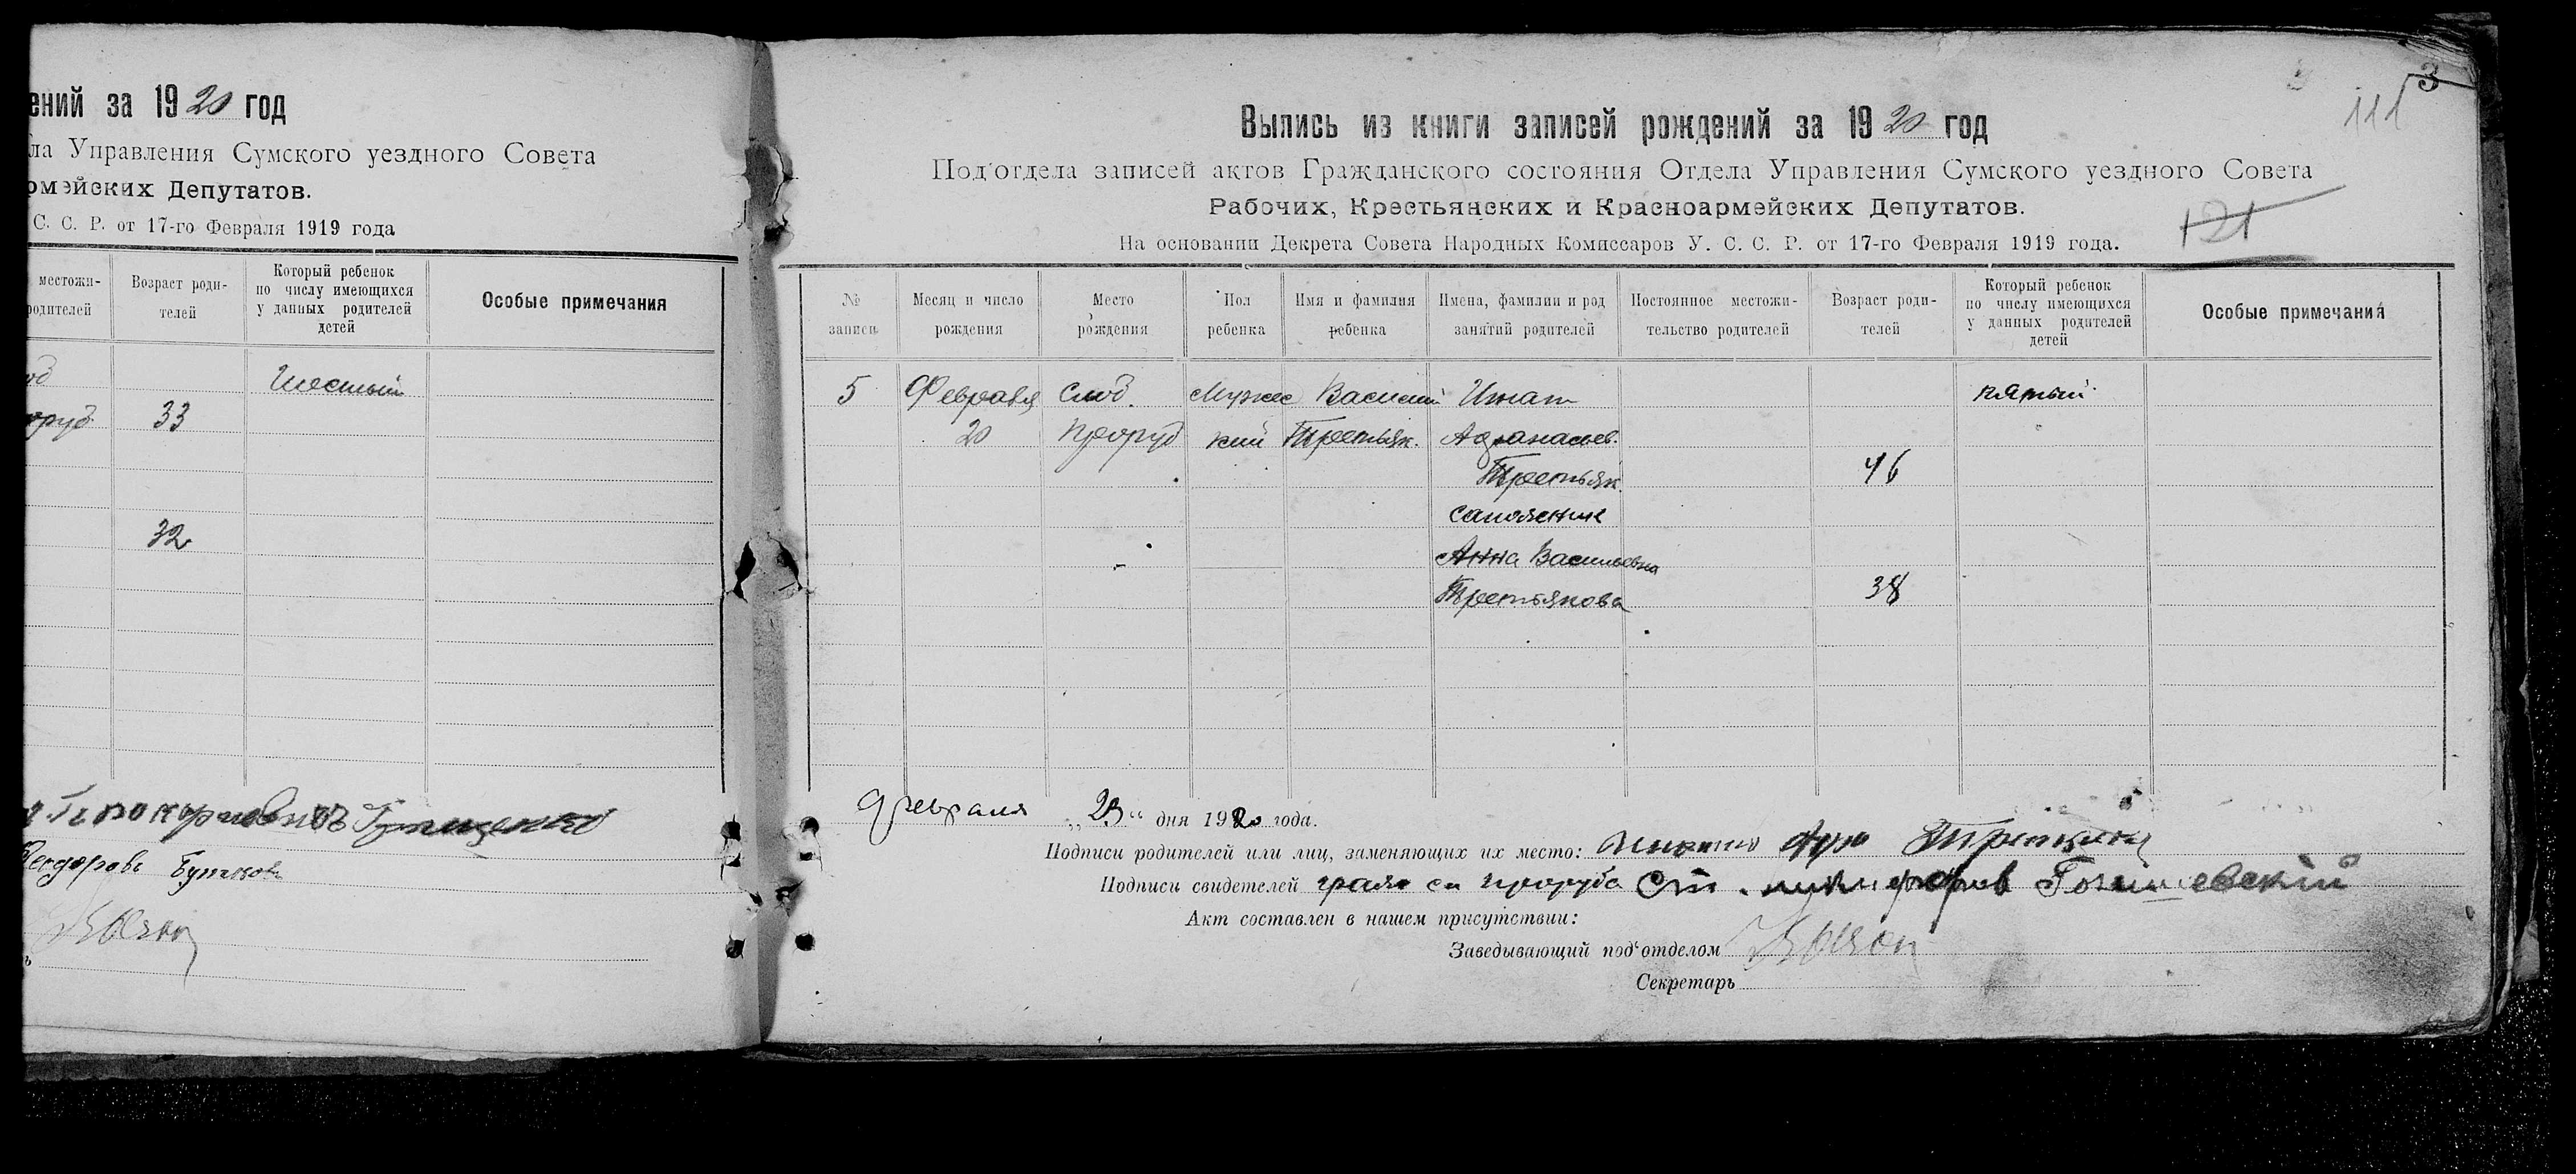 ений за 1920 год
ла Управления Сумского уездного Совета
рмейских Депутатов.
С. С. Р. от 17-го Февраля 1919 года
местожи-
родителей
Возраст роди-
телей
Который ребенок
по числу имеющихся
у данных родителей
детей
Особые примечания
Шестый
33
32
Бутков
3
111
Выпись из книги записей рождений за 1920 год
Под'отдела записей актов Гражданского состояния Отдела Управления Сумского уездного Совета
Рабочих, Крестьянских и Красноармейских Депутатов.
121
На основании Декрета Совета Народных Комиссаров У. С. С. Р. от 17-го Февраля 1919 года.
№
записи
Месяц и число
рождения
Место
рождения
Пол
ребенка
Имя и фамилия
ребенка
Имена, фамилии и род
занятий родителей
Постоянное местожи-
тельство родителей
Возраст роди-
телей
Который ребенок
по числу имеющихся
у данных родителей
детей
Особые примечания
5 Февраля Слоб. Мужс Василий Игнат пятый
20 Проруб кий Третьяк. Афанасьев.
Третьяк. 46
сапожник
Анна Васильевна
Третьякова 38
февраля „23“ дня 1920 года.
Подписи родителей или лиц, заменяющих их место:
Подписи свидетелей
Акт составлен в нашем присутствии:
Заведывающий под'отделом
Секретарь